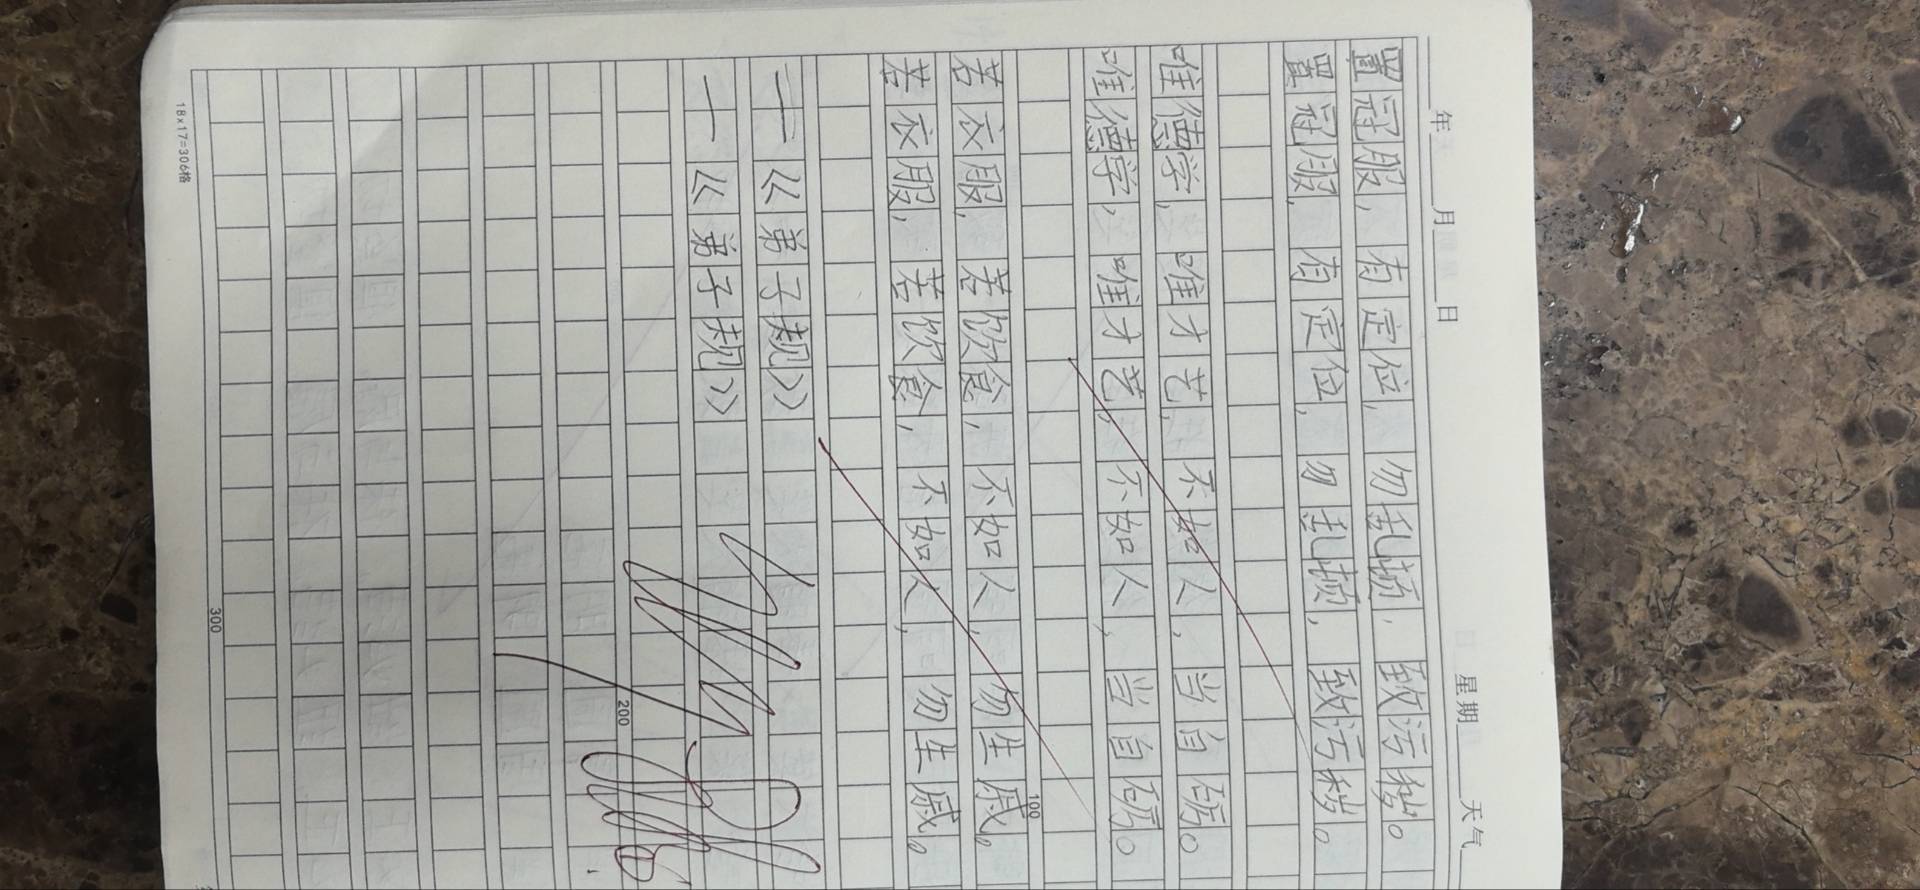 年 月 日 星期 天气
置冠服,有定位,勿乱顿,致污秽。
置冠服,有定位,勿乱顿,致污秽。
唯德学,唯才艺,不如人,当自砺。
唯德学,唯才艺,不如人,当自砺。
100
若衣服,若饮食,不如人,勿生戚。
若衣服,若饮食,不如人,勿生戚。
一《弟子规》
一《弟子规》
200
300
18×17=306格